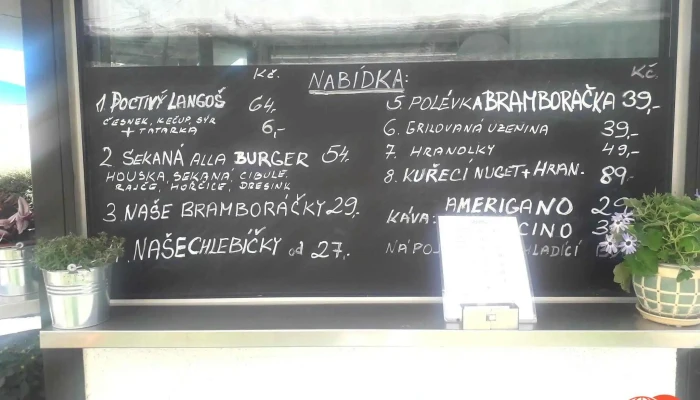 NABÍDKA:
Kč.
1 POCTIVÝ LANGOŠ 64,-
ČESNEK, KEČUP, SÝR
+ TATARKA 6,-
2 SEKANÁ ALLA BURGER 54.
HOUSKA, SEKANÁ, CIBULE,
RAJČE, HOŘČICE, DRESINK
3 NAŠE BRAMBORÁČKY 29,-
NAŠE CHLEBÍČKY od 27,-
Kč.
5 POLÉVKA BRAMBORAČKA 39,-
6. GRILOVANÁ UZENINA 39,-
7. HRANOLKY 49,-
8. KUŘECÍ NUGET + HRAN. 89,-
KÁVA: AMERIGANO
CINO
NÁPOJ HLADÍCÍ